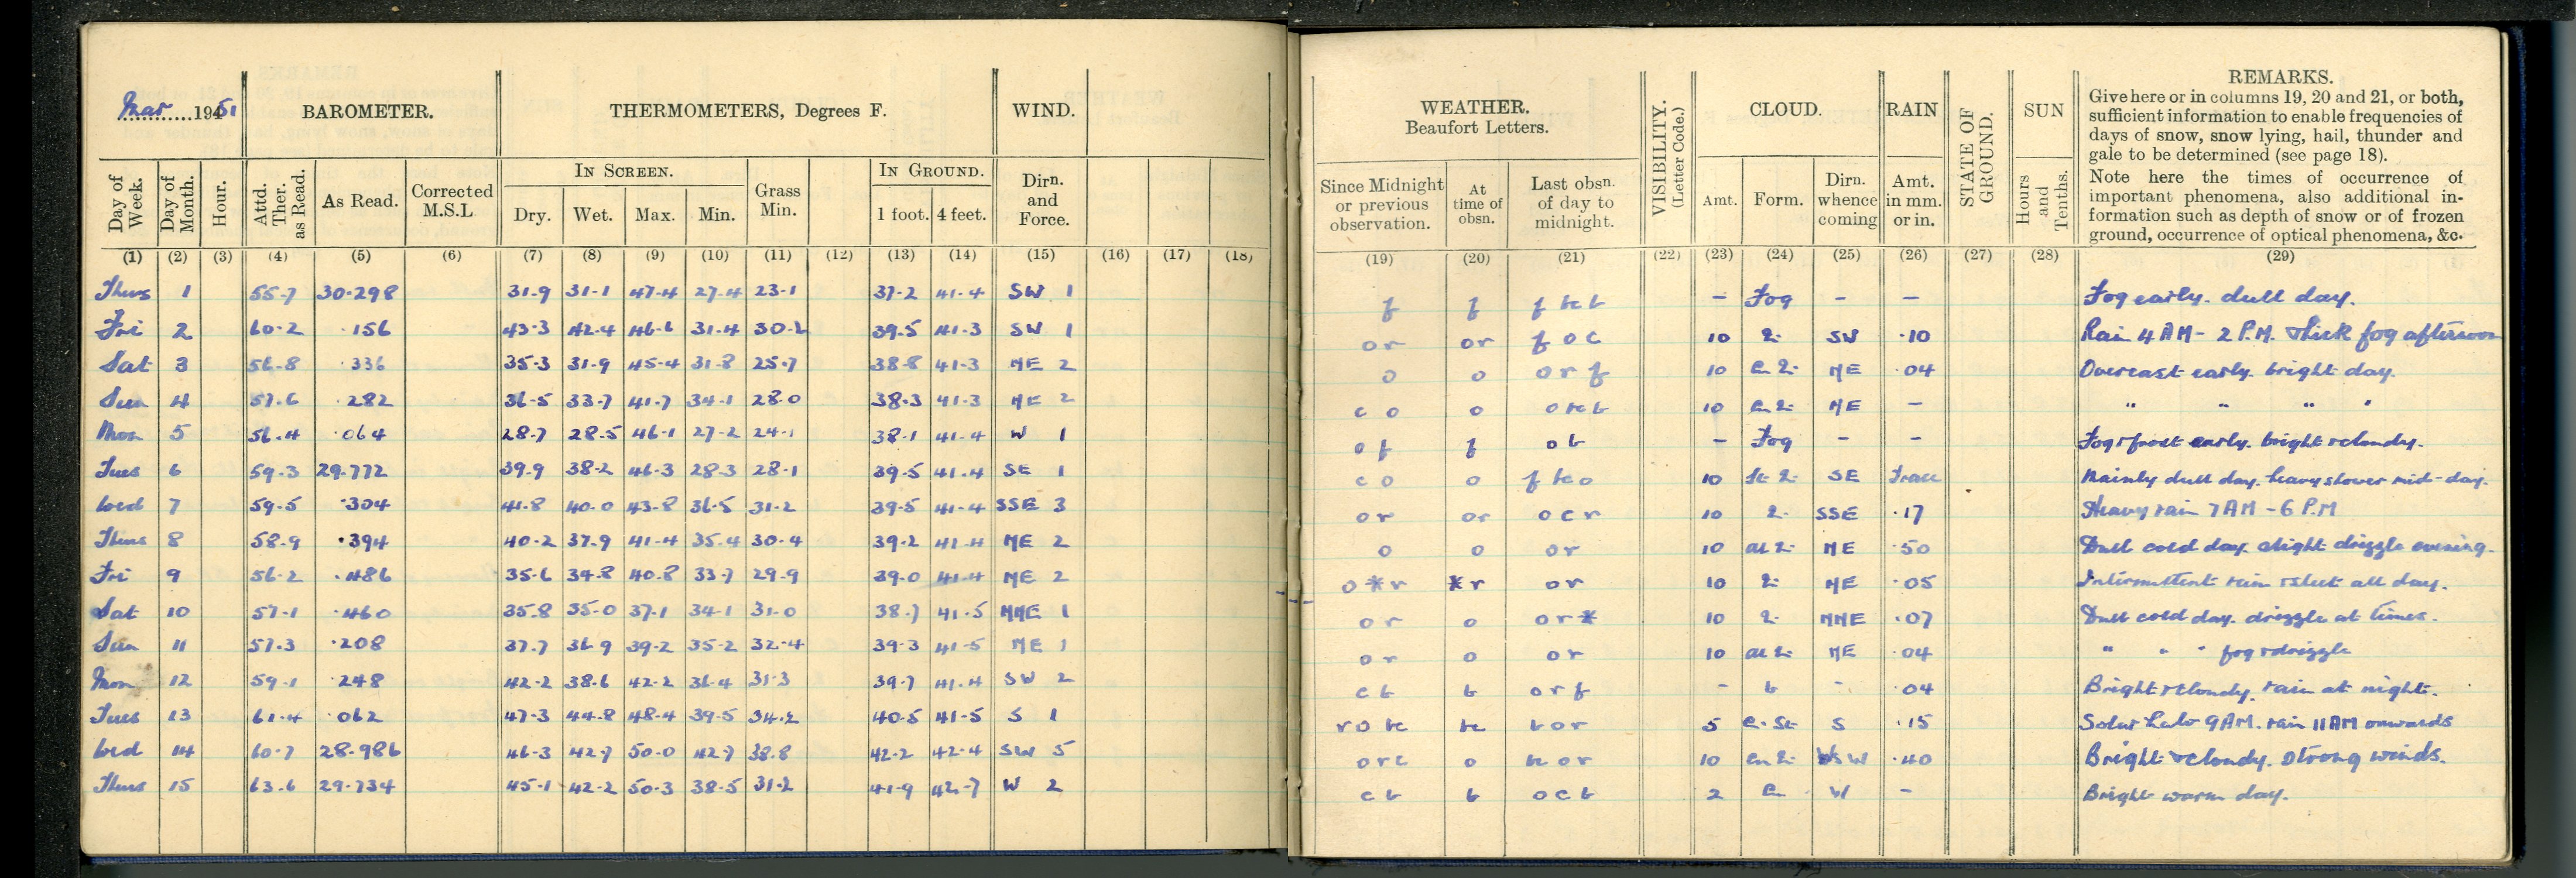 Mar 1951
BAROMETER.
THERMOMETERS, Degrees F.
WIND.
WEATHER.
Beaufort Letters.
VISIBILITY.
(Letter Code.)
CLOUD.
RAIN
STATE OF
GROUND.
SUN
REMARKS.
Give here or in columns 19, 20 and 21, or both,
sufficient information to enable frequencies of
days of snow, snow lying, hail, thunder and
gale to be determined (see page 18).
Note here the times of occurrence of
important phenomena, also additional in-
formation such as depth of snow or of frozen
ground, occurrence of optical phenomena, &c.
Day of Week. Day of Month. Hour. Attd. Ther. as Read. As Read. Corrected M.S.L. IN SCREEN. Dry. Wet. Max. Min. Grass Min. IN GROUND. 1 foot. 4 feet. Dirn. and Force.
Since Midnight or previous observation. At time of obsn. Last obsn. of day to midnight. Amt. Form. Dirn. whence coming Amt. in mm. or in. Hours and Tenths.
(1) (2) (3) (4) (5) (6) (7) (8) (9) (10) (11) (12) (13) (14) (15) (16) (17) (18) (19) (20) (21) (22) (23) (24) (25) (26) (27) (28) (29)
Thurs 1 55.7 30.298 31.9 31.1 47.4 27.4 23.1 37.2 41.4 SW 1 f f – Fog – – Fog early. dull day.
Fri 2 60.2 .156 43.3 42.4 46.6 31.4 30.2 39.5 41.3 SW 1 or or f o c 10 SW .10 Rain 4 AM – 2 P.M. Thick fog afternoon
Sat 3 56.8 .336 35.3 31.9 45.4 31.8 25.7 38.8 41.3 NE 2 o o o r f 10 NE .04 Overcast early. bright day.
Sun 4 57.6 .282 36.5 33.7 41.7 34.1 28.0 38.3 41.3 NE 2 c o o 10 NE – " " " "
Mon 5 56.4 .064 28.7 28.5 46.1 27.2 24.1 38.1 41.4 W 1 of f o b – Fog – – Fog & frost early. bright & cloudy.
Tues 6 59.3 29.772 39.9 38.2 46.3 28.3 28.1 39.5 41.4 SE 1 c o o 10 SE Trace Mainly dull day. heavy shower mid-day.
Wed 7 59.5 .304 41.8 40.0 43.8 36.5 31.2 39.5 41.4 SSE 3 or or o c r 10 SSE .17 Heavy rain 7 AM – 6 P.M
Thurs 8 58.9 .394 40.2 37.9 41.4 35.4 30.4 39.2 41.4 NE 2 o o o r 10 NE .50 Dull cold day. slight drizzle evening.
Fri 9 56.2 .486 35.6 34.8 40.8 33.7 29.9 39.0 41.4 NE 2 o * r * r o r 10 NE .05 Intermittent rain & sleet all day.
Sat 10 57.1 .460 35.8 35.0 37.1 34.1 31.0 38.7 41.5 NNE 1 o r o o r * 10 NNE .07 Dull cold day. drizzle at times.
Sun 11 57.3 .208 37.7 36.9 39.2 35.2 32.4 39.3 41.5 NE 1 o r o o r 10 NE .04 " " " fog & drizzle
Mon 12 59.1 .248 42.2 38.6 42.2 36.4 31.3 39.7 41.4 SW 2 c b b o r f – b – .04 Bright & cloudy. rain at night.
Tues 13 61.4 .062 47.3 44.8 48.4 39.5 34.2 40.5 41.5 S 1 b o r 5 S .15 Solar halo 9AM. rain 11AM onwards
Wed 14 60.7 28.986 46.3 42.7 50.0 42.7 38.8 42.2 42.4 SW 5 o r c o 10 .40 Bright & cloudy. Strong winds.
Thurs 15 63.6 29.734 45.1 42.2 50.3 38.5 31.2 41.9 42.7 W 2 c b b o c b 2 W – Bright warm day.